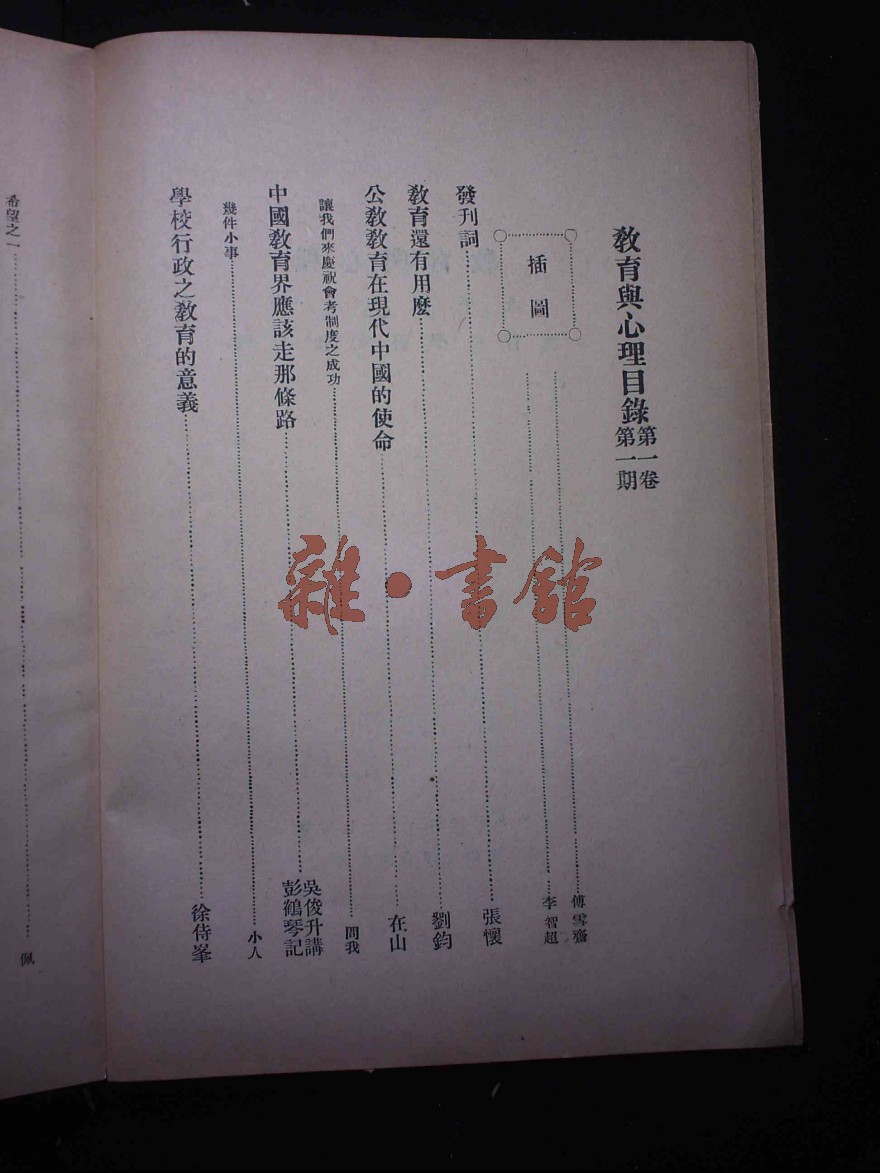 教育與心理目錄 第一卷 第一期
插圖
傅雪齋
李智超
發刊詞 張懷
教育還有用麽 劉鈞
公教教育在現代中國的使命 在山
讓我們來慶祝會考制度之成功 問我
中國教育界應該走那條路 吳俊升講 彭鶴琴記
幾件小事 小人
學校行政之教育的意義 徐侍峯
希望之一 佩
雜·書館